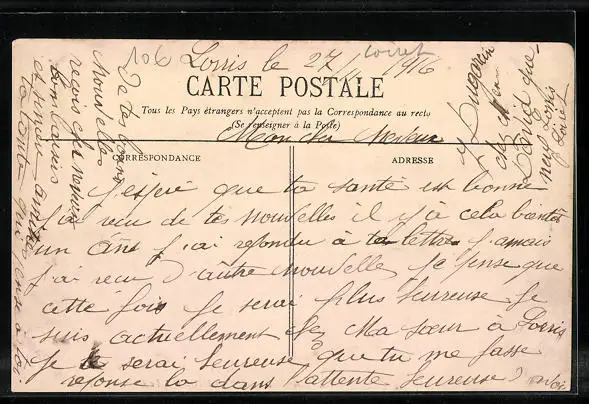 106 Lorris le 27/1 1916
Loiret
CARTE POSTALE
Tous les Pays étrangers n'acceptent pas la Correspondance au recto
(Se renseigner à la Poste)
Mon cher Neveux
CORRESPONDANCE
ADRESSE
J'espère que ta santé est bonne
j'ai recu de tes nouvelles il y à cela bientot
un ans j'ai repondu à ta lettre jamais
j'ai recu d'autre nouvelle je pense que
cette fois je serai plus heureuse Je
suis actuellement chez Ma sœur à Lorris
Je serai heureuse que tu me fasse
reponse la dans l'attente heureuse d'avoir
De tes bonnes
Nouvelles
recois cher neveux
et pinou
ta tante qui pense à toi
chez
David que
neuf Lorris
Loiret